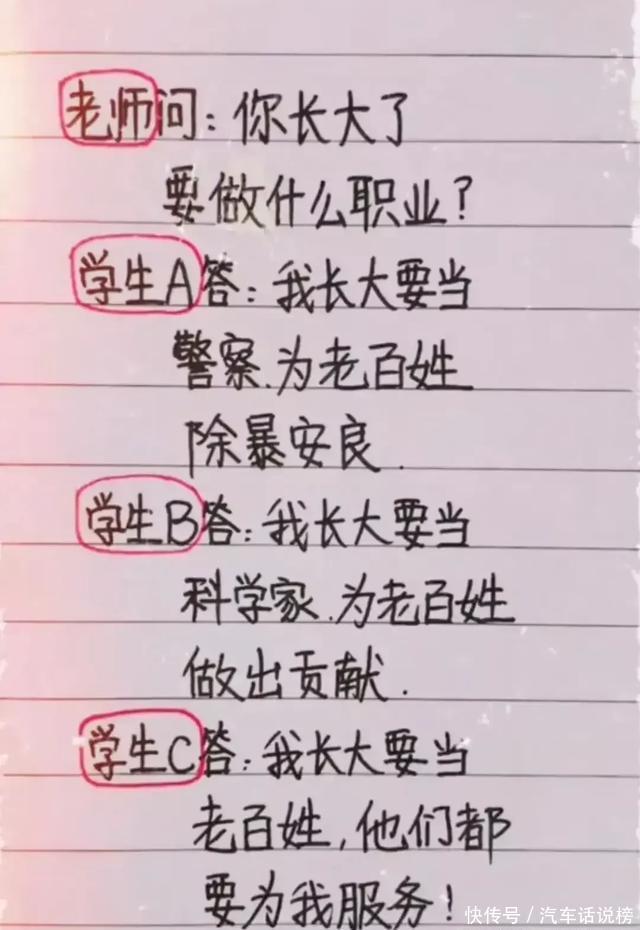 老师问：你长大了
要做什么职业？
学生A答：我长大要当
警察.为老百姓
除暴安良.
学生B答：我长大要当
科学家.为老百姓
做出贡献.
学生C答：我长大要当
老百姓，他们都
要为我服务！
快传号／汽车话说榜